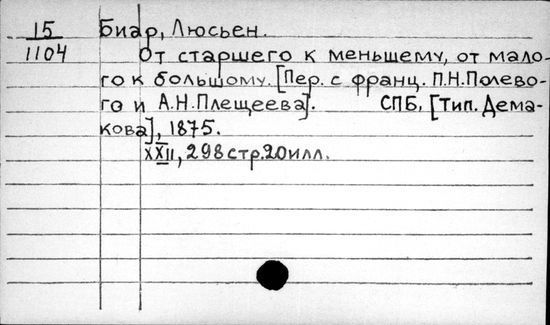 15 Биар, Люсьен.
1104 От старшего к меньшему, от мало-
го к большому. [Пер. с франц. П.Н.Полево-
го и А.Н.Плещеева]. СПБ, [Тип. Дема-
кова], 1875.
XXII, 298 стр. 20 илл.